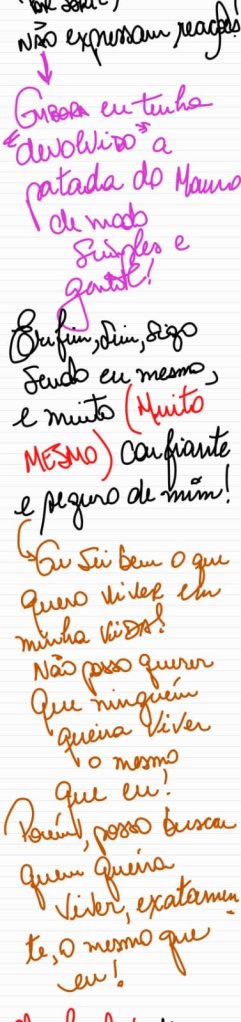 NÃO expressam reações!
EMBORA eu tenha
"devolvido" a
patada do Mauro
de modo
simples e
gentil!
Enfim, sim, sigo
sendo eu mesmo,
e muito (Muito
MESMO) confiante
e seguro de mim!
Eu sei bem o que
quero viver em
minha VIDA!
Não posso querer
que ninguém
queira viver
o mesmo
que eu!
Porém, posso buscar
quem queira
viver, exatamen
te, o mesmo que
eu!